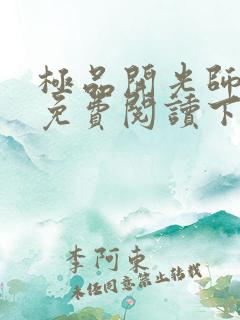 極品開光師
免費閱讀下
李阿東
未经同意禁止转载